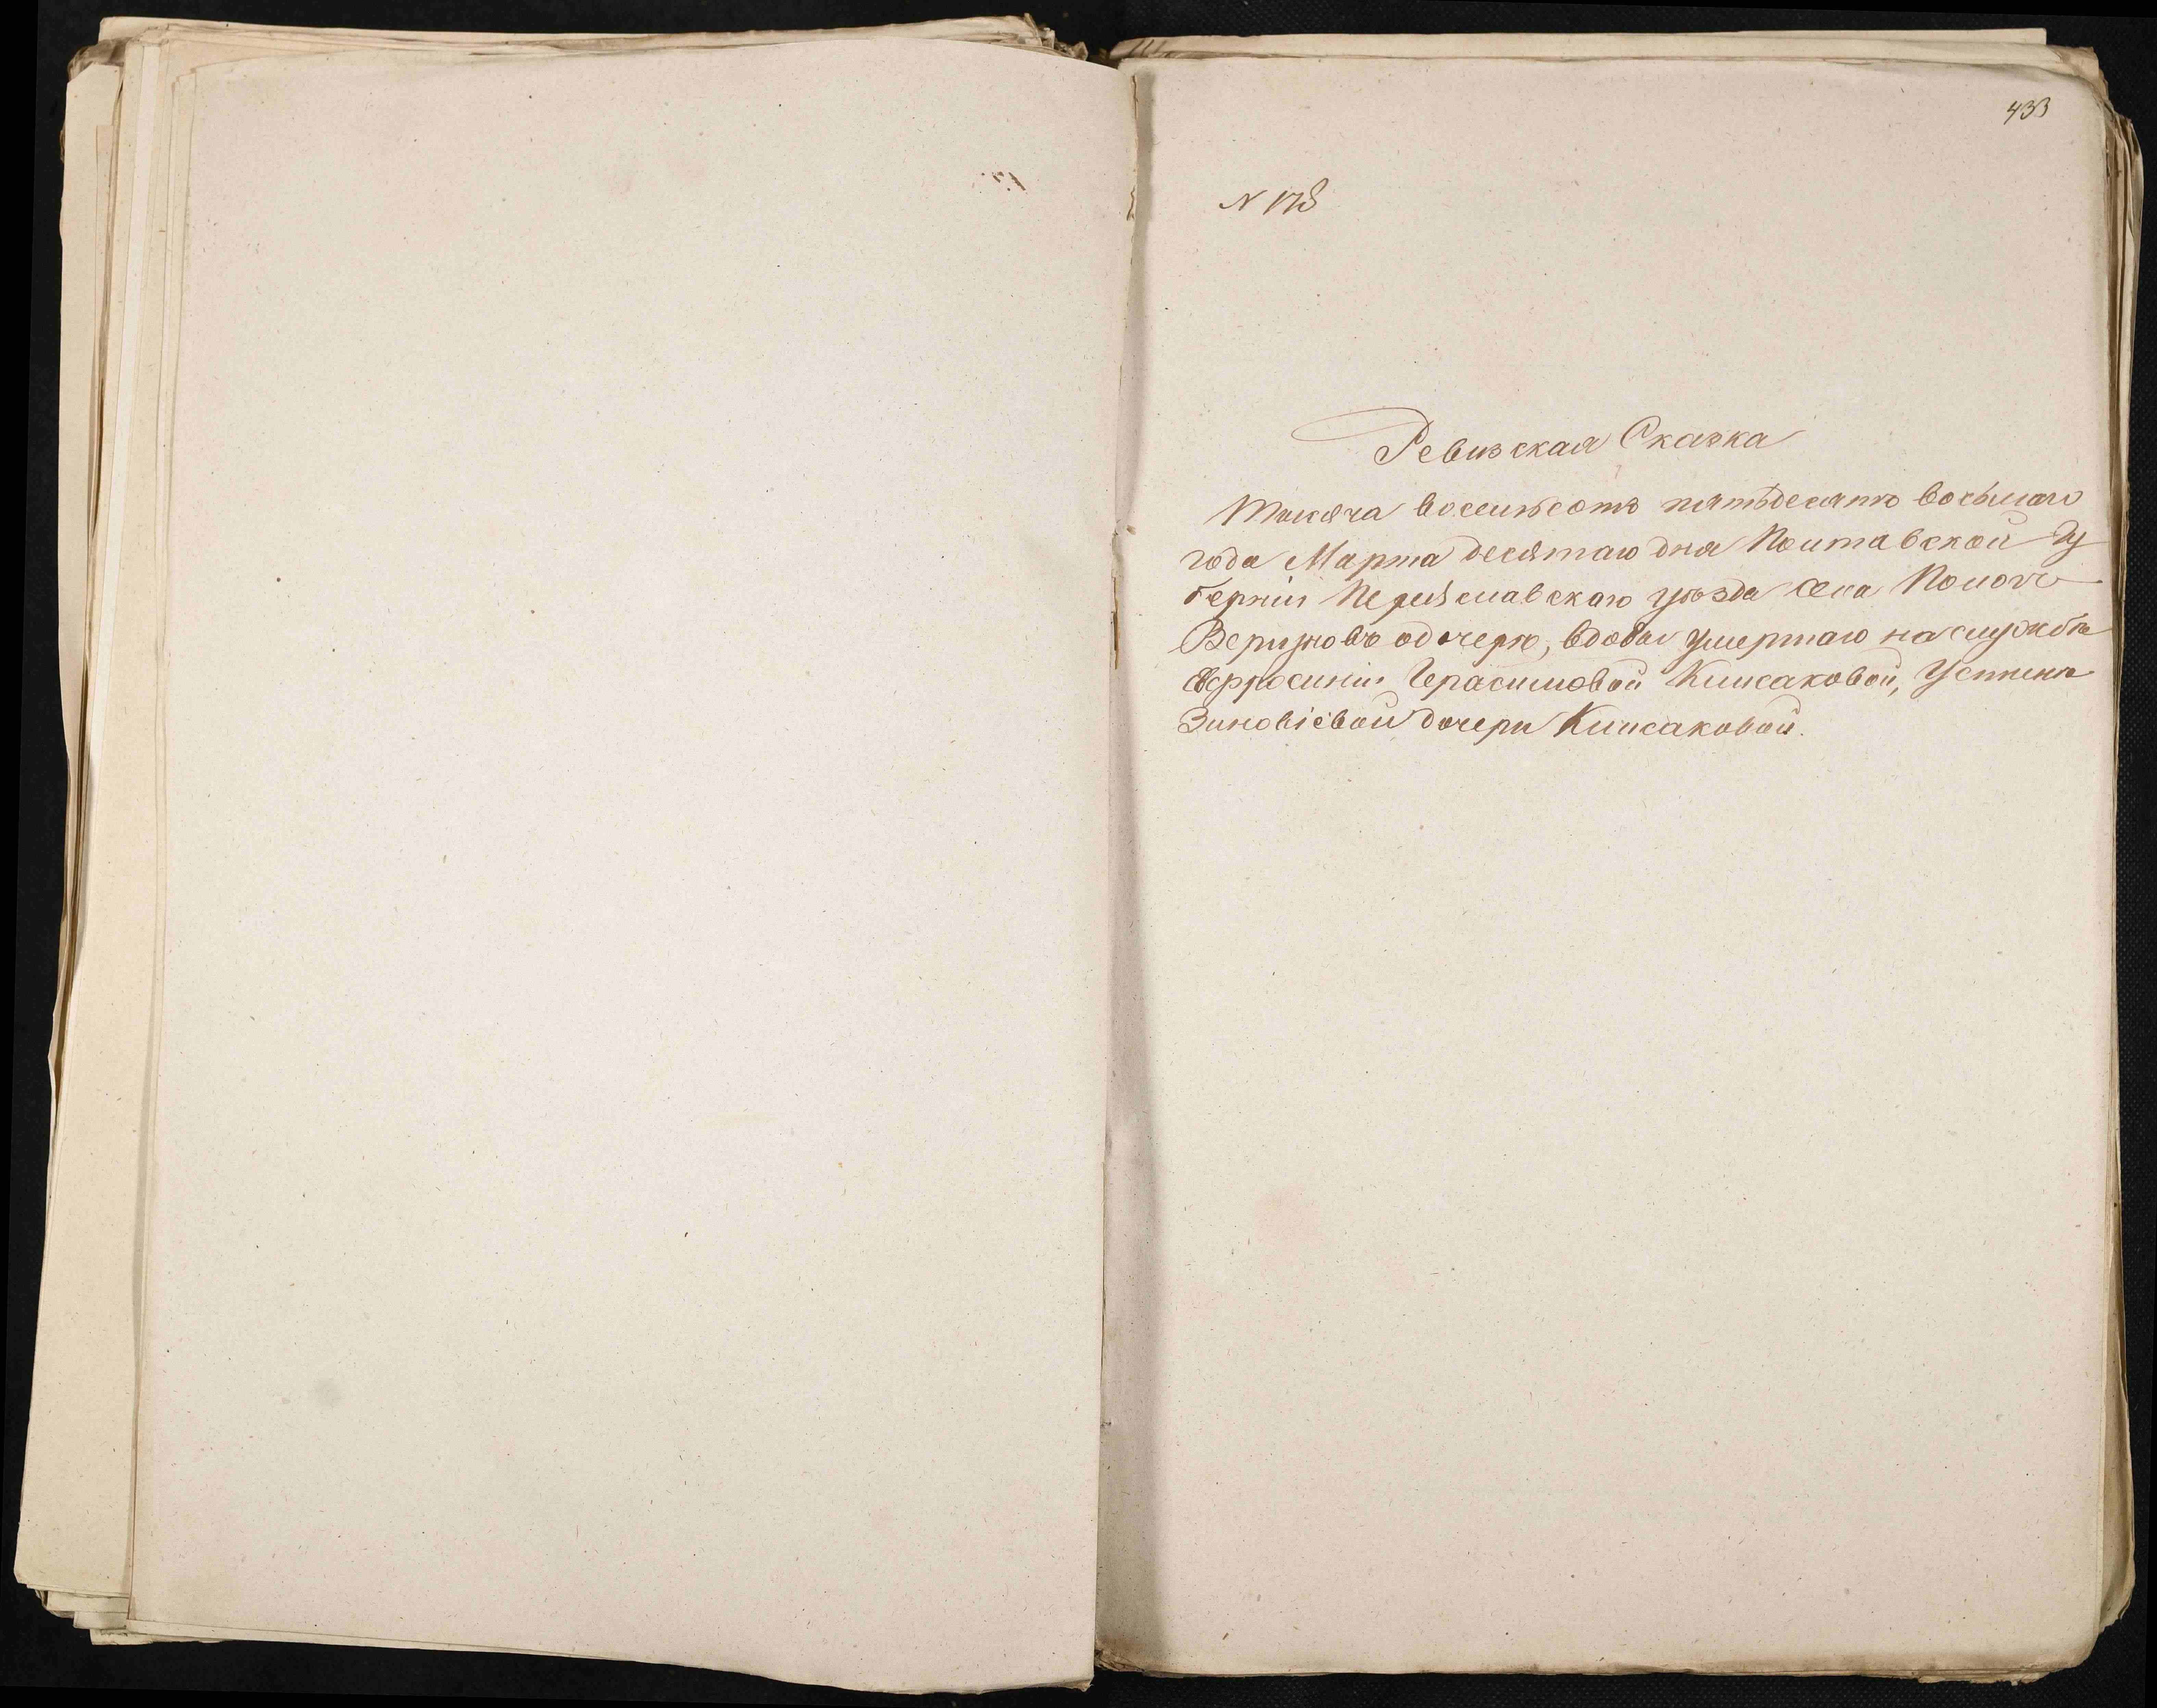 433
N 178
Ревизская Сказка
Тысяча восемьсотъ пятьдесятъ восьмаго
года Марта десятаго дня Полтавской Гу
берніи Переяславскаго уѣзда села Пологи
Вергуновъ о дочерѣ, вдовы умершаго на службѣ
Евфросиніи Герасимовой Кипсаковой, Устинѣ
Зиновіевой дочери Кипсаковой.